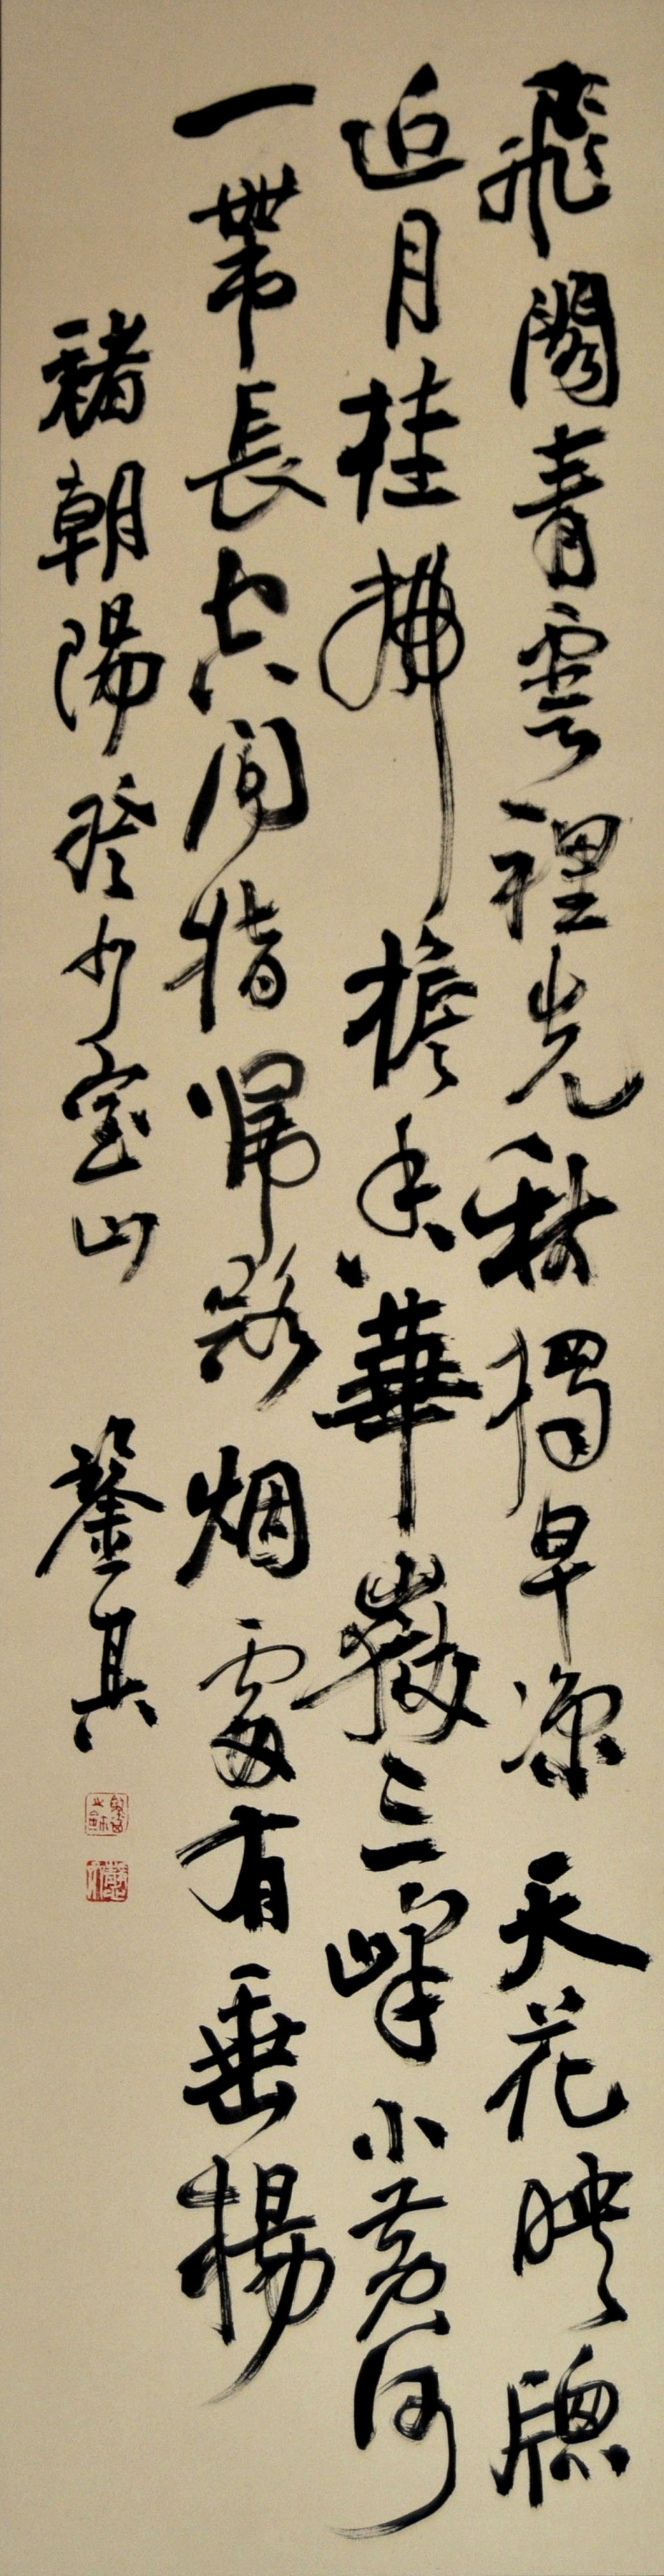 飛閣青雲裡先秋獨早涼天花映牕
近月桂拂檐香華嶽三峰小黃河
一帶長空间指歸路烟處有垂楊
褚朝陽登少室山 鑒其